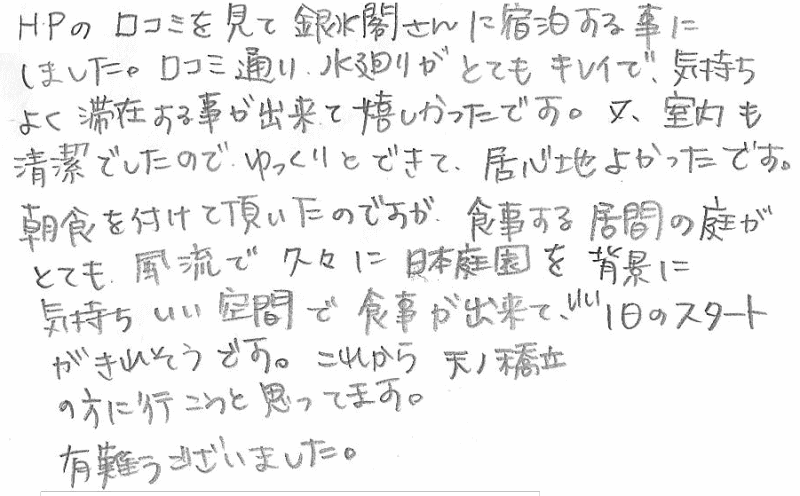 HPの口コミを見て銀水閣さんに宿泊する事に
しました。口コミ通り、水廻りがとてもキレイで、気持ち
よく滞在する事が出来て嬉しかったです。又、室内も
清潔でしたので、ゆっくりとできて、居心地よかったです。
朝食を付けて頂いたのですが、食事する居間の庭が
とても、風流で久々に日本庭園を背景に
気持ちいい空間で食事が出来て、いい1日のスタート
がきれそうです。これから天ノ橋立
の方に行こうと思ってます。
有難うございました。